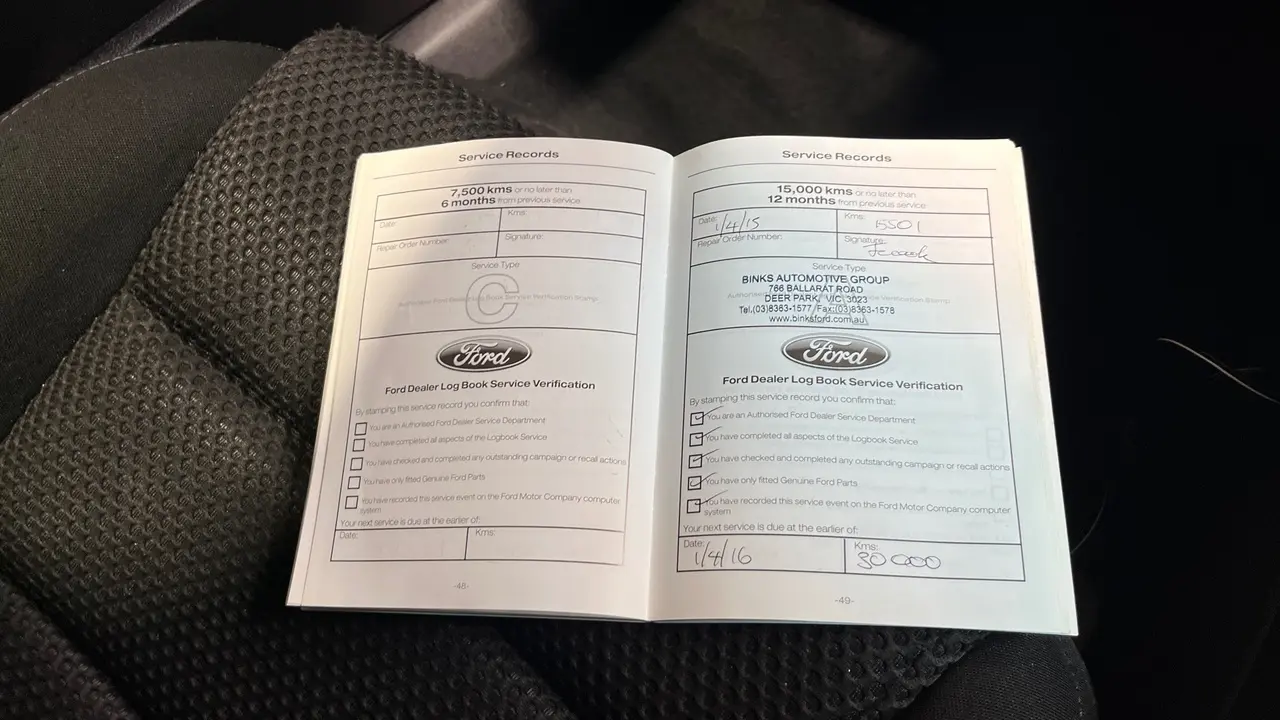 Service Records
7,500 kms or no later than
6 months from previous service
Date:
Kms:
Repair Order Number:
Signature:
Service Type
C
Authorised Ford Dealer Log Book Service Verification Stamp
Ford
Ford Dealer Log Book Service Verification
By stamping this service record you confirm that:
You are an Authorised Ford Dealer Service Department
You have completed all aspects of the Logbook Service
You have checked and completed any outstanding campaign or recall actions
You have only fitted Genuine Ford Parts
You have recorded this service event on the Ford Motor Company computer
system
Your next service is due at the earlier of:
Date:
Kms:
-48-
Service Records
15,000 kms or no later than
12 months from previous service
Date: 1/4/15
Kms: 15501
Repair Order Number:
Signature:
Service Type
BINKS AUTOMOTIVE GROUP
766 BALLARAT ROAD
DEER PARK, VIC 3023
Tel.(03)8363-1577 Fax:(03)8363-1578
www.binksford.com.au
Ford
Ford Dealer Log Book Service Verification
By stamping this service record you confirm that:
You are an Authorised Ford Dealer Service Department
You have completed all aspects of the Logbook Service
You have checked and completed any outstanding campaign or recall actions
You have only fitted Genuine Ford Parts
You have recorded this service event on the Ford Motor Company computer
system
Your next service is due at the earlier of:
Date: 1/4/16
Kms: 30000
-49-